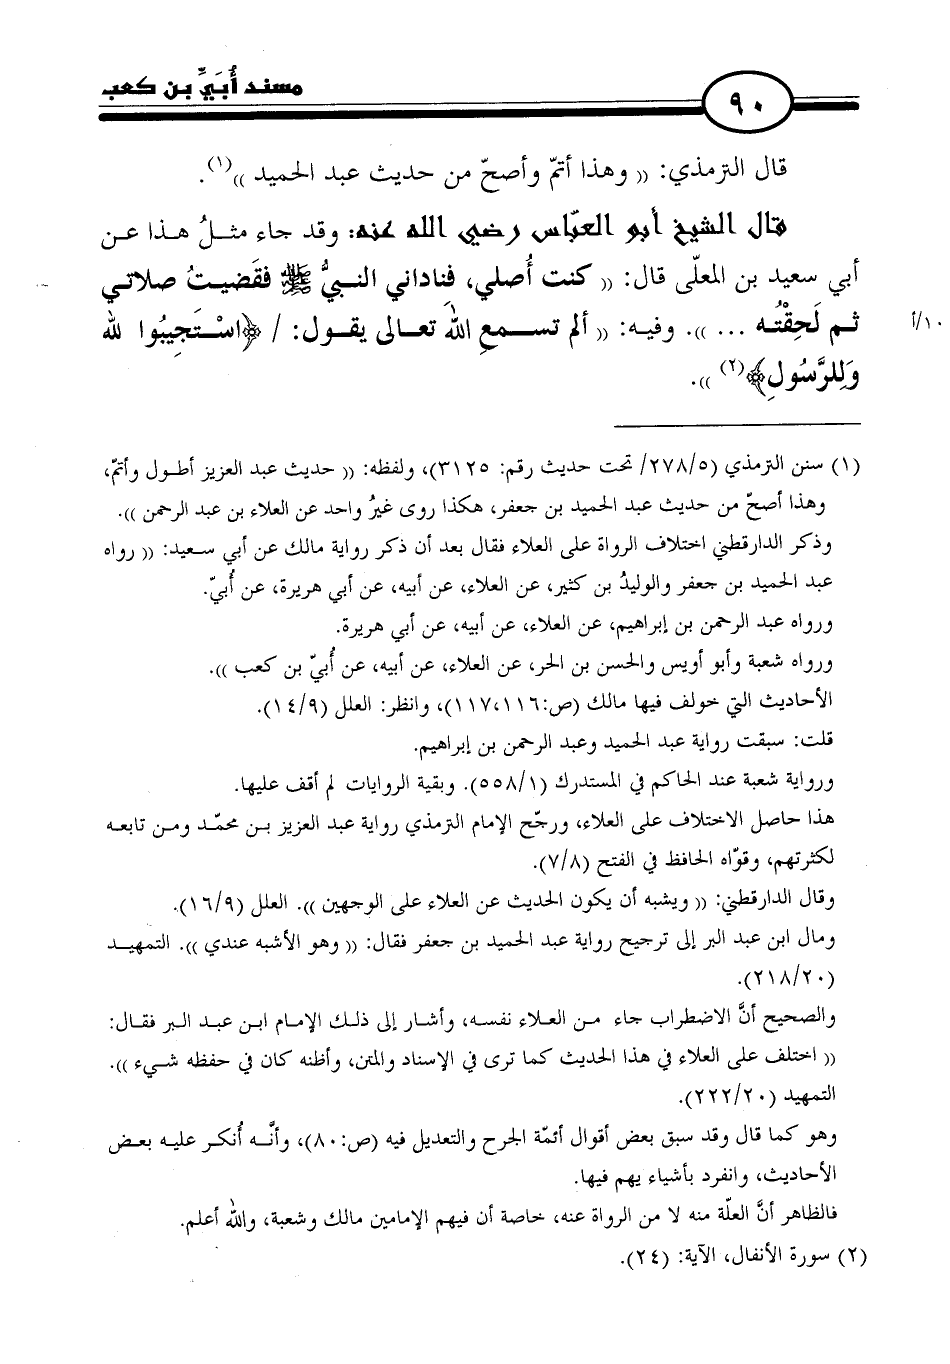 مسند أُبَيِّ بن كعب
٩٠
قال الترمذي: (( وهذا أتمّ وأصحّ من حديث عبد الحميد ))(١).
قال الشيخ أبو العبّاس رضي الله عنه: وقد جاء مثلُ هذا عن
أبي سعيد بن المعلّى قال: (( كنت أُصلي، فناداني النبيُّ ﷺ فقَضيتُ صلاتي
ثم لَحِقْتُه ... )). وفيه: (( ألم تسمعِ اللهَ تعالى يقول: / ﴿اسْتَجِيبُوا لله
١٠/أ
وَلِلرَّسُولِ﴾(٢) )).
(١) سنن الترمذي (٢٧٨/٥/ تحت حديث رقم: ٣١٢٥)، ولفظه: (( حديث عبد العزيز أطول وأتمّ،
وهذا أصحّ من حديث عبد الحميد بن جعفر، هكذا روى غيرُ واحد عن العلاء بن عبد الرحمن )).
وذكر الدارقطني اختلاف الرواة على العلاء فقال بعد أن ذكر رواية مالك عن أبي سعيد: (( رواه
عبد الحميد بن جعفر والوليدُ بن كثير، عن العلاء، عن أبيه، عن أبي هريرة، عن أُبيّ.
ورواه عبد الرحمن بن إبراهيم، عن العلاء، عن أبيه، عن أبي هريرة.
ورواه شعبة وأبو أويس والحسن بن الحر، عن العلاء، عن أبيه، عن أُبيّ بن كعب )).
الأحاديث التي خولف فيها مالك (ص:١١٧،١١٦)، وانظر: العلل (١٤/٩).
قلت: سبقت رواية عبد الحميد وعبد الرحمن بن إبراهيم.
ورواية شعبة عند الحاكم في المستدرك (٥٥٨/١). وبقية الروايات لم أقف عليها.
هذا حاصل الاختلاف على العلاء، ورجّح الإمام الترمذي رواية عبد العزيز بن محمّد ومن تابعه
لكثرتهم، وقوّاه الحافظ في الفتح (٧/٨).
وقال الدارقطني: (( ويشبه أن يكون الحديث عن العلاء على الوجهين )). العلل (١٦/٩).
ومال ابن عبد البر إلى ترجيح رواية عبد الحميد بن جعفر فقال: (( وهو الأشبه عندي )). التمهيد
(٢١٨/٢٠).
والصحيح أنَّ الاضطراب جاء من العلاء نفسه، وأشار إلى ذلك الإمام ابن عبد البر فقال:
(( اختلف على العلاء في هذا الحديث كما ترى في الإسناد والمتن، وأظنه كان في حفظه شيء )).
التمهيد (٢٢٢/٢٠).
وهو كما قال وقد سبق بعض أقوال أئمّة الجرح والتعديل فيه (ص:٨٠)، وأنَّه أُنكر عليه بعض
الأحاديث، وانفرد بأشياء يهم فيها.
فالظاهر أنَّ العلّة منه لا من الرواة عنه، خاصة أن فيهم الإمامين مالك وشعبة، والله أعلم.
(٢) سورة الأنفال، الآية: (٢٤).